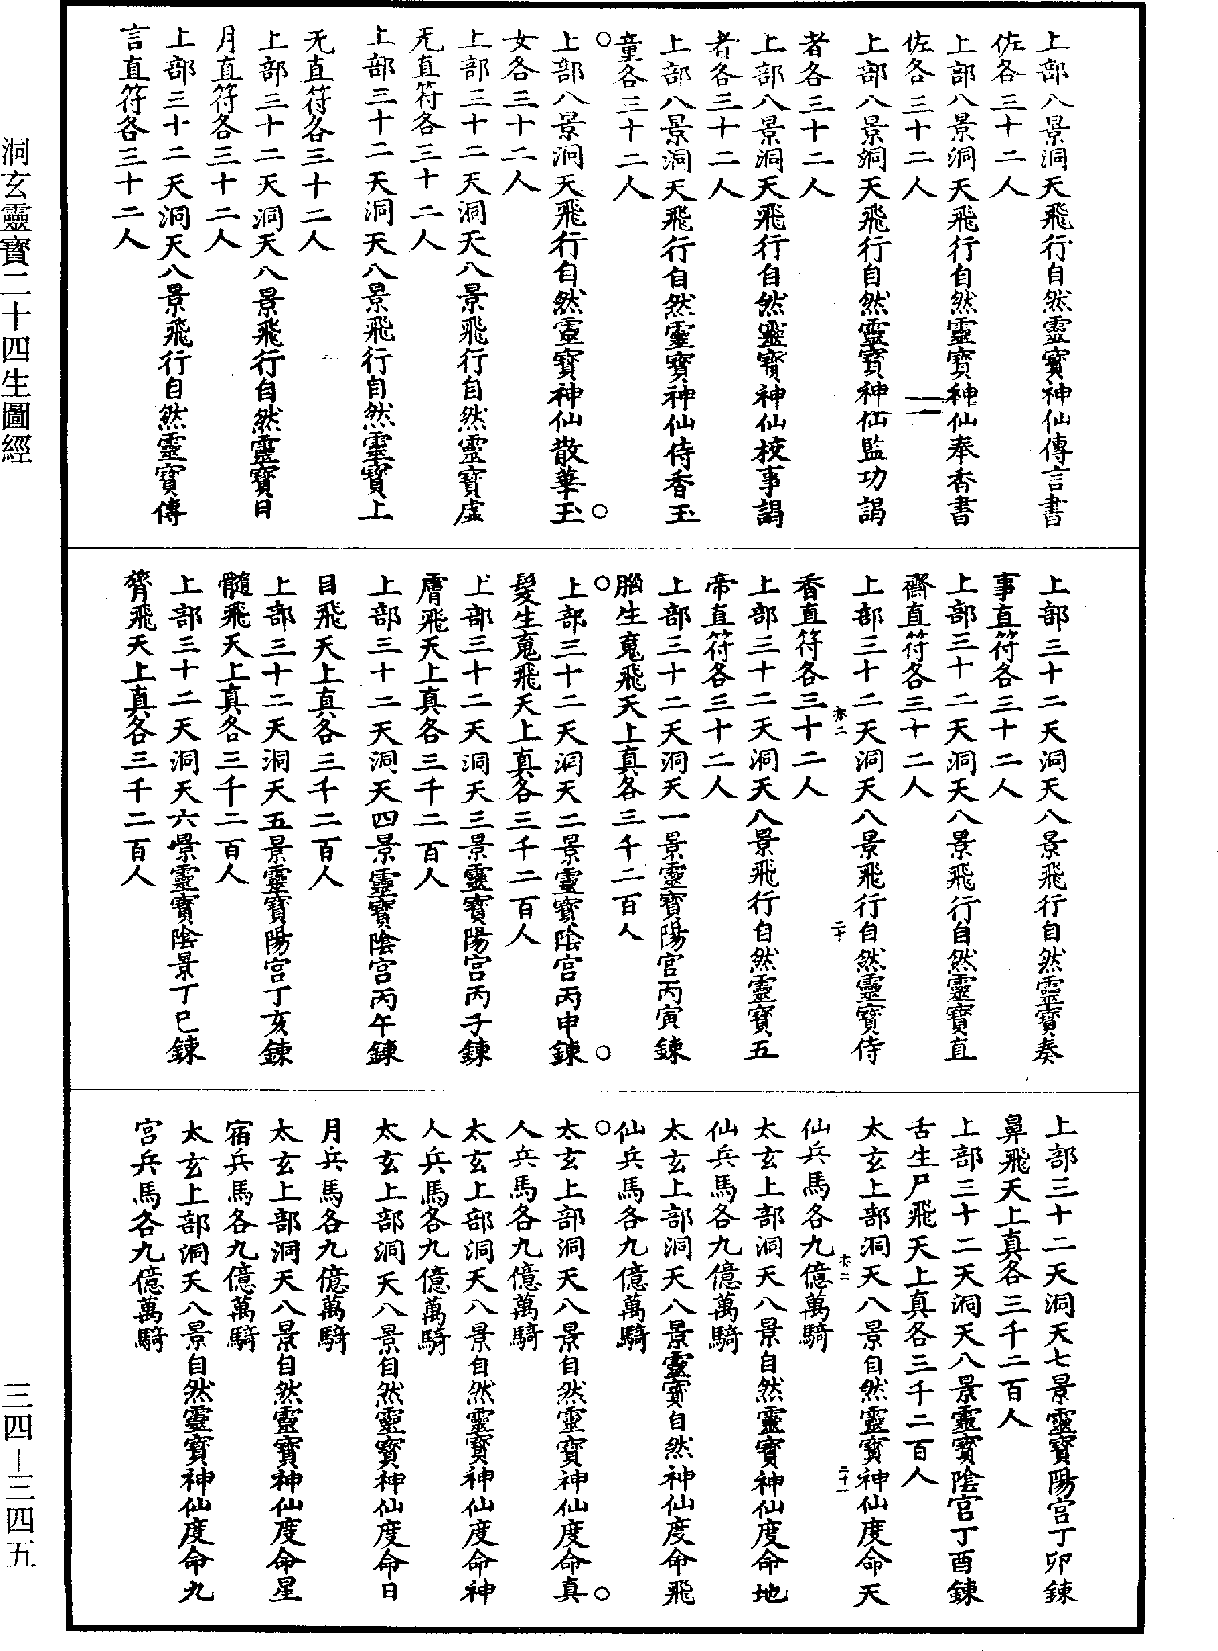 上部八景洞天飛行自然靈寶神仙傳言書
佐各三十二人
上部八景洞天飛行自然靈寶神仙奉香書
佐各三十二人
上部八景洞天飛行自然靈寶神仙監功謁
者各三十二人
上部八景洞天飛行自然靈寶神仙校事謁
者各三十二人
上部八景洞天飛行自然靈寶神仙侍香玉
童各三十二人
上部八景洞天飛行自然靈寶神仙散華玉
女各三十二人
上部三十二天洞天八景飛行自然靈寶虛
无直符各三十二人
上部三十二天洞天八景飛行自然靈寶上
无直符各三十二人
上部三十二天洞天八景飛行自然靈寶日
月直符各三十二人
上部三十二天洞天八景飛行自然靈寶傳
言直符各三十二人
上部三十二天洞天八景飛行自然靈寶奏
事直符各三十二人
上部三十二天洞天八景飛行自然靈寶直
齋直符各三十二人
上部三十二天洞天八景飛行自然靈寶侍
香直符各三十二人
上部三十二天洞天八景飛行自然靈寶五
帝直符各三十二人
上部三十二天洞天一景靈寶陽宫丙寅鍊
腦生䰟飛天上真各三千二百人
上部三十二天洞天二景靈寶陰宫丙申鍊
髮生䰟飛天上真各三千二百人
上部三十二天洞天三景靈寶陽宫丙子鍊
膚飛天上真各三千二百人
上部三十二天洞天四景靈寶陰宫丙午鍊
目飛天上真各三千二百人
上部三十二天洞天五景靈寶陽宫丁亥鍊
髓飛天上真各三千二百人
上部三十二天洞天六景靈寶陰景丁巳鍊
膂飛天上真各三千二百人
上部三十二天洞天七景靈寶陽宫丁卯鍊
鼻飛天上真各三千二百人
上部三十二天洞天八景靈寶陰宫丁酉鍊
舌生尸飛天上真各三千二百人
太玄上部洞天八景自然靈寶神仙度命天
仙兵馬各九億萬騎
太玄上部洞天八景自然靈寶神仙度命地
仙兵馬各九億萬騎
太玄上部洞天八景靈寶自然神仙度命飛
仙兵馬各九億萬騎
太玄上部洞天八景自然靈寶神仙度命真
人兵馬各九億萬騎
太玄上部洞天八景自然靈寶神仙度命神
人兵馬各九億萬騎
太玄上部洞天八景自然靈寶神仙度命日
月兵馬各九億萬騎
太玄上部洞天八景自然靈寶神仙度命星
宿兵馬各九億萬騎
太玄上部洞天八景自然靈寶神仙度命九
宫兵馬各九億萬騎
洞玄靈寶二十四生圖經
三四—三四五